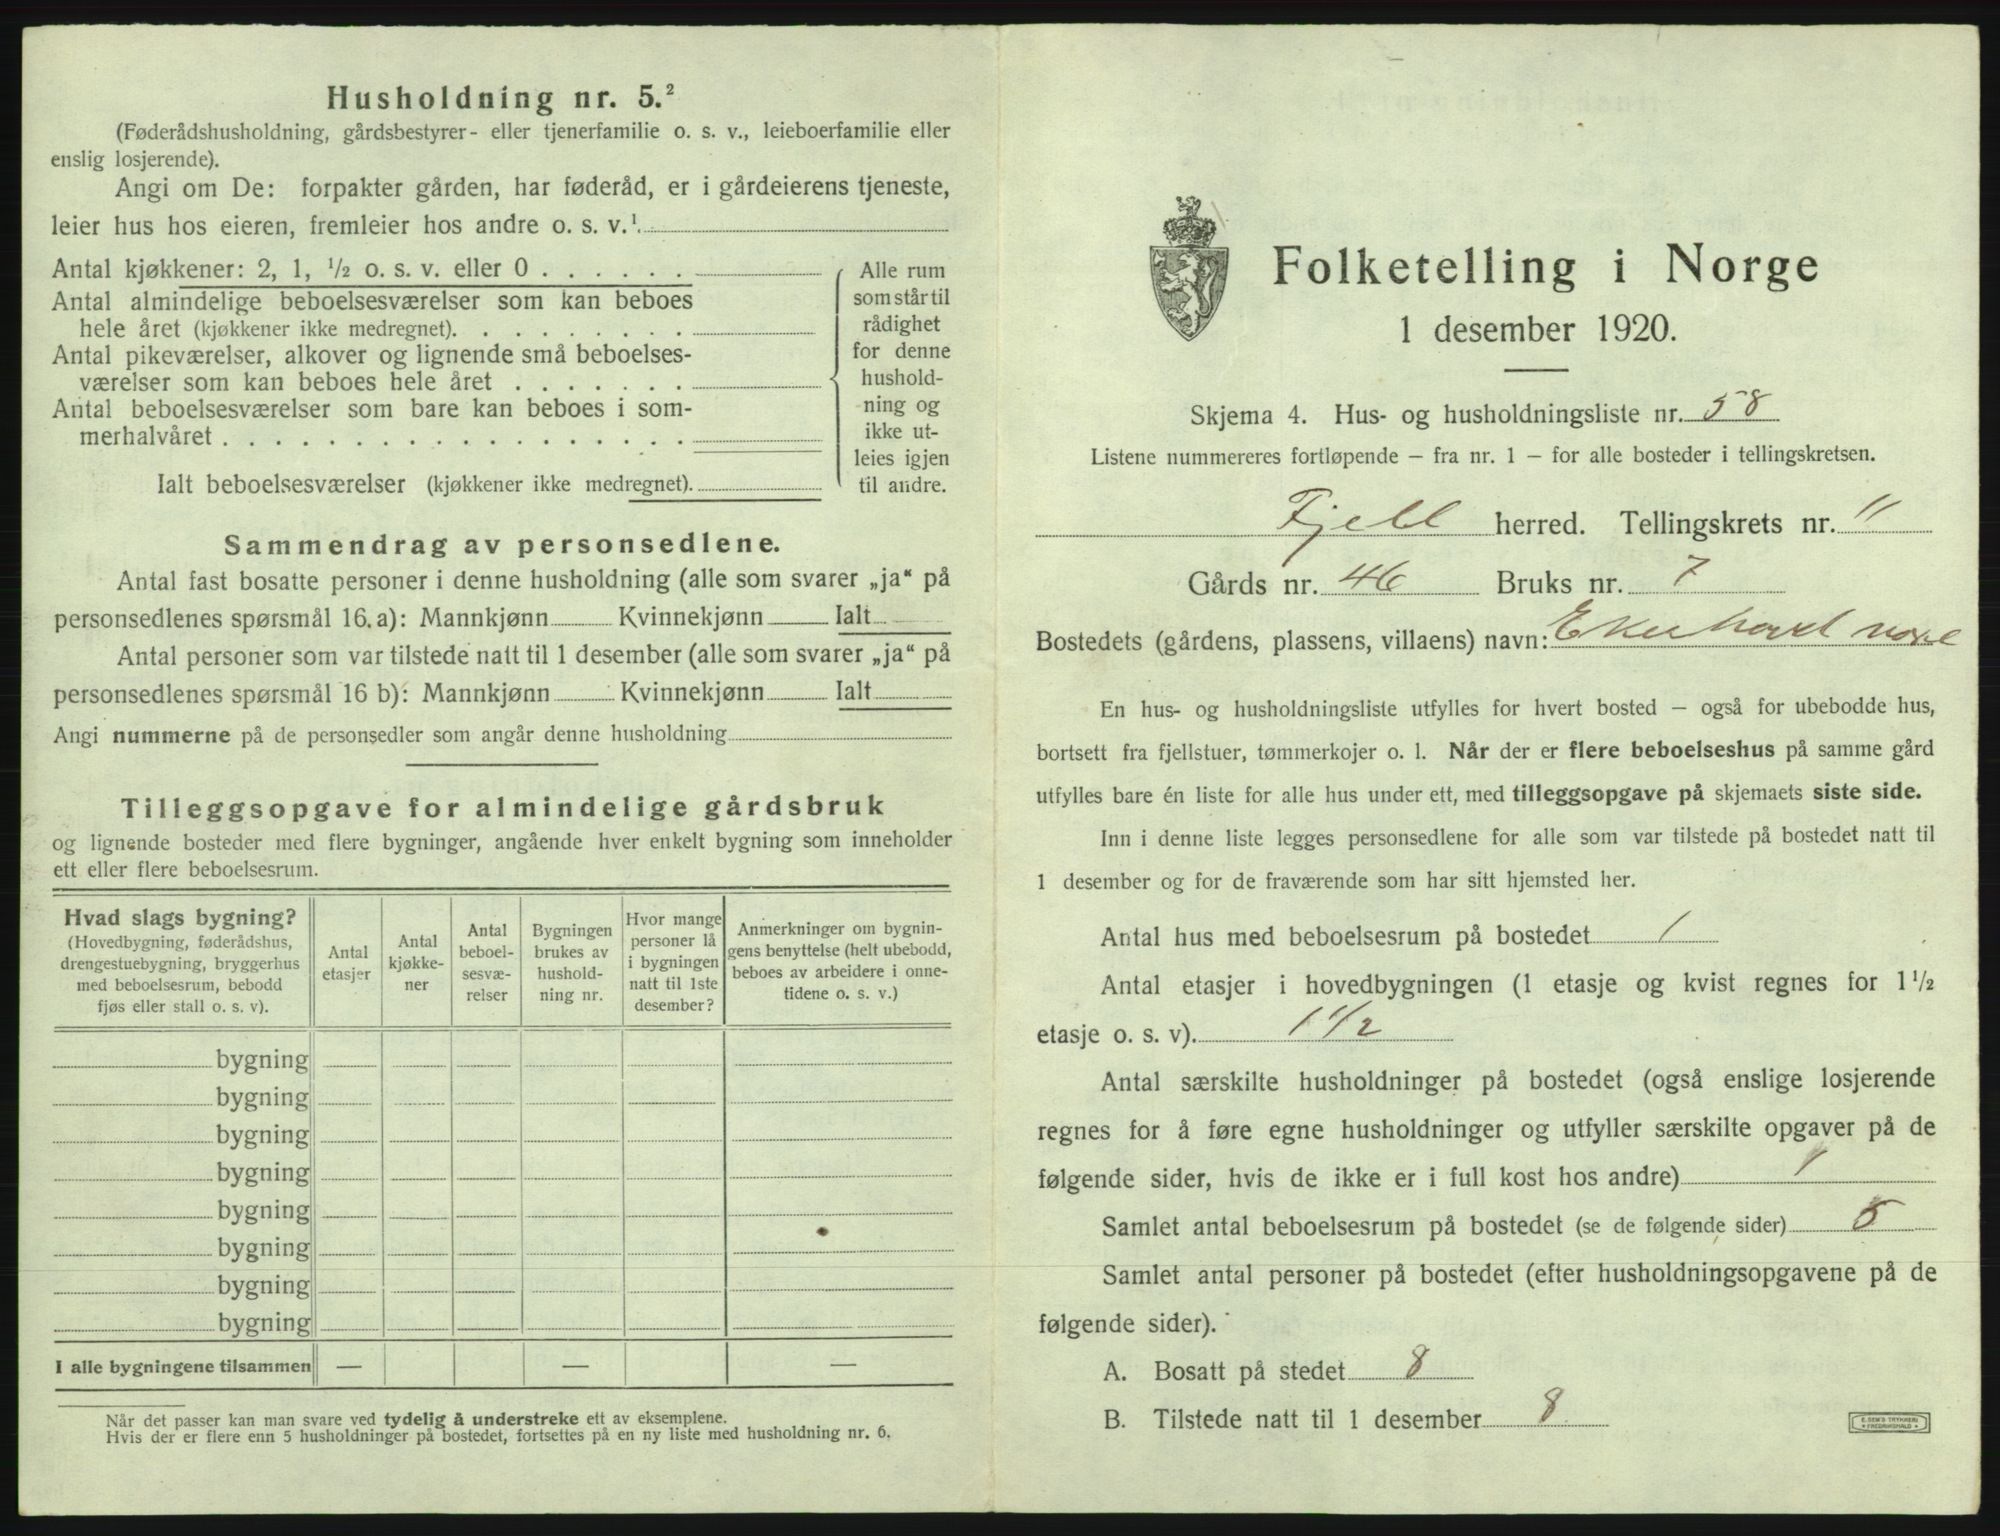 Husholdning nr. 5.²
(Føderådshusholdning, gårdsbestyrer- eller tjenerfamilie o. s. v., leieboerfamilie eller
enslig losjerende).
Angi om De: forpakter gården, har føderåd, er i gårdeierens tjeneste,
leier hus hos eieren, fremleier hos andre o. s. v.¹
Antal kjøkkener: 2, 1, ½ o. s. v. eller 0
Antal almindelige beboelsesværelser som kan beboes
hele året (kjøkkener ikke medregnet).
Antal pikeværelser, alkover og lignende små beboelses-
værelser som kan beboes hele året
Antal beboelsesværelser som bare kan beboes i som-
merhalvåret
Ialt beboelsesværelser (kjøkkener ikke medregnet).
Alle rum
som står til
rådighet
for denne
hushold-
ning og
ikke ut-
leies igjen
til andre.
Sammendrag av personsedlene.
Antal fast bosatte personer i denne husholdning (alle som svarer „ja“ på
personsedlenes spørsmål 16. a): Mannkjønn Kvinnekjønn Ialt
Antal personer som var tilstede natt til 1 desember (alle som svarer „ja“ på
personsedlenes spørsmål 16 b): Mannkjønn Kvinnekjønn Ialt
Angi nummerne på de personsedler som angår denne husholdning
Tilleggsopgave for almindelige gårdsbruk
og lignende bosteder med flere bygninger, angående hver enkelt bygning som inneholder
ett eller flere beboelsesrum.
Hvad slags bygning?
(Hovedbygning, føderådshus,
drengestuebygning, bryggerhus
med beboelsesrum, bebodd
fjøs eller stall o. s. v).
Antal
etasjer
Antal
kjøkke-
ner
Antal
beboel-
sesvæ-
relser
Bygningen
brukes av
hushold-
ning nr.
Hvor mange
personer lå
i bygningen
natt til 1ste
desember?
Anmerkninger om bygnin-
gens benyttelse (helt ubebodd,
beboes av arbeidere i onne-
tidene o. s. v.)
bygning
bygning
bygning
bygning
bygning
bygning
bygning
bygning
I alle bygningene tilsammen — — —
Når det passer kan man svare ved tydelig å understreke ett av eksemplene.
Hvis der er flere enn 5 husholdninger på bostedet, fortsettes på en ny liste med husholdning nr. 6.
Folketelling i Norge
1 desember 1920.
Skjema 4. Hus- og husholdningsliste nr. 58
Listene nummereres fortløpende — fra nr. 1 — for alle bosteder i tellingskretsen.
Fjell herred. Tellingskrets nr. 11
Gårds nr. 46 Bruks nr. 7
Bostedets (gårdens, plassens, villaens) navn:
En hus- og husholdningsliste utfylles for hvert bosted — også for ubebodde hus,
bortsett fra fjellstuer, tømmerkojer o. l. Når der er flere beboelseshus på samme gård
utfylles bare én liste for alle hus under ett, med tilleggsopgave på skjemaets siste side.
Inn i denne liste legges personsedlene for alle som var tilstede på bostedet natt til
1 desember og for de fraværende som har sitt hjemsted her.
Antal hus med beboelsesrum på bostedet 1
Antal etasjer i hovedbygningen (1 etasje og kvist regnes for 1 ½
etasje o. s. v). 1 1/2
Antal særskilte husholdninger på bostedet (også enslige losjerende
regnes for å føre egne husholdninger og utfyller særskilte opgaver på de
følgende sider, hvis de ikke er i full kost hos andre) 1
Samlet antal beboelsesrum på bostedet (se de følgende sider) 5
Samlet antal personer på bostedet (efter husholdningsopgavene på de
følgende sider).
A. Bosatt på stedet 8
B. Tilstede natt til 1 desember 8
E. SEM'S TRYKKERI
FREDRIKSHALD